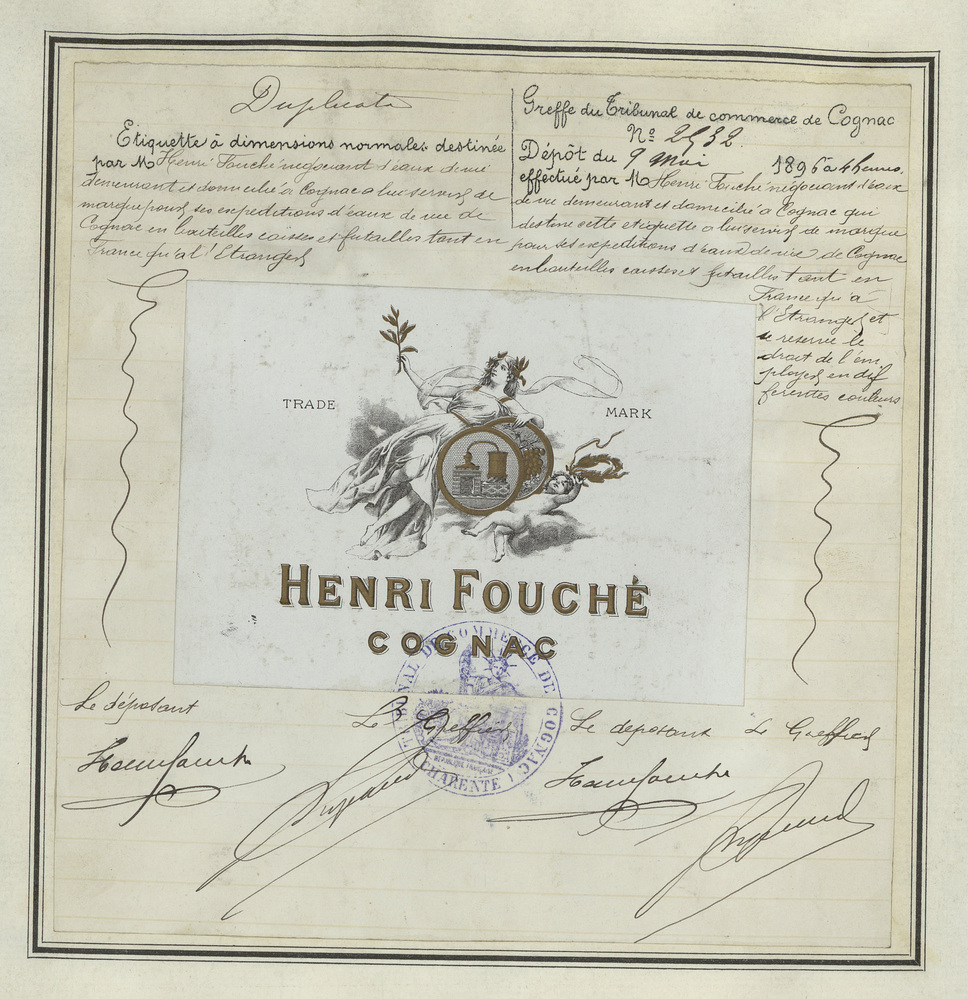 Duplicata
Etiquette à dimensions normales destinée
par M Henri Fouché négociant d'eaux de vie
demeurant et domicilié à Cognac a lui servir de
marque pour ses expeditions d'eaux de vie de
Cognac en bouteilles caisses et futailles tant en
France qu'a l'Etranger
Greffe du Tribunal de commerce de Cognac
Nº 2532
Dépôt du 9 Mai 1896 à 4 heures.
effectué par M Henri Fouché négociant d'eaux
de vie demeurant et domicilié a Cognac qui
destine cette etiquette a lui servir de marque
pour ses expeditions d'eaux de vie de Cognac
en bouteilles caisses et futailles tant en
France qu'à
l'Etranger et
se reserve le
droit de l'em
ployer en dif
ferentes couleurs
TRADE MARK
HENRI FOUCHÉ
COGNAC
TRIBUNAL DE COMMERCE DE COGNAC
RÉPUBLIQUE FRANÇAISE
(CHARENTE)
Le déposant Le Greffier Le deposant Le Greffier